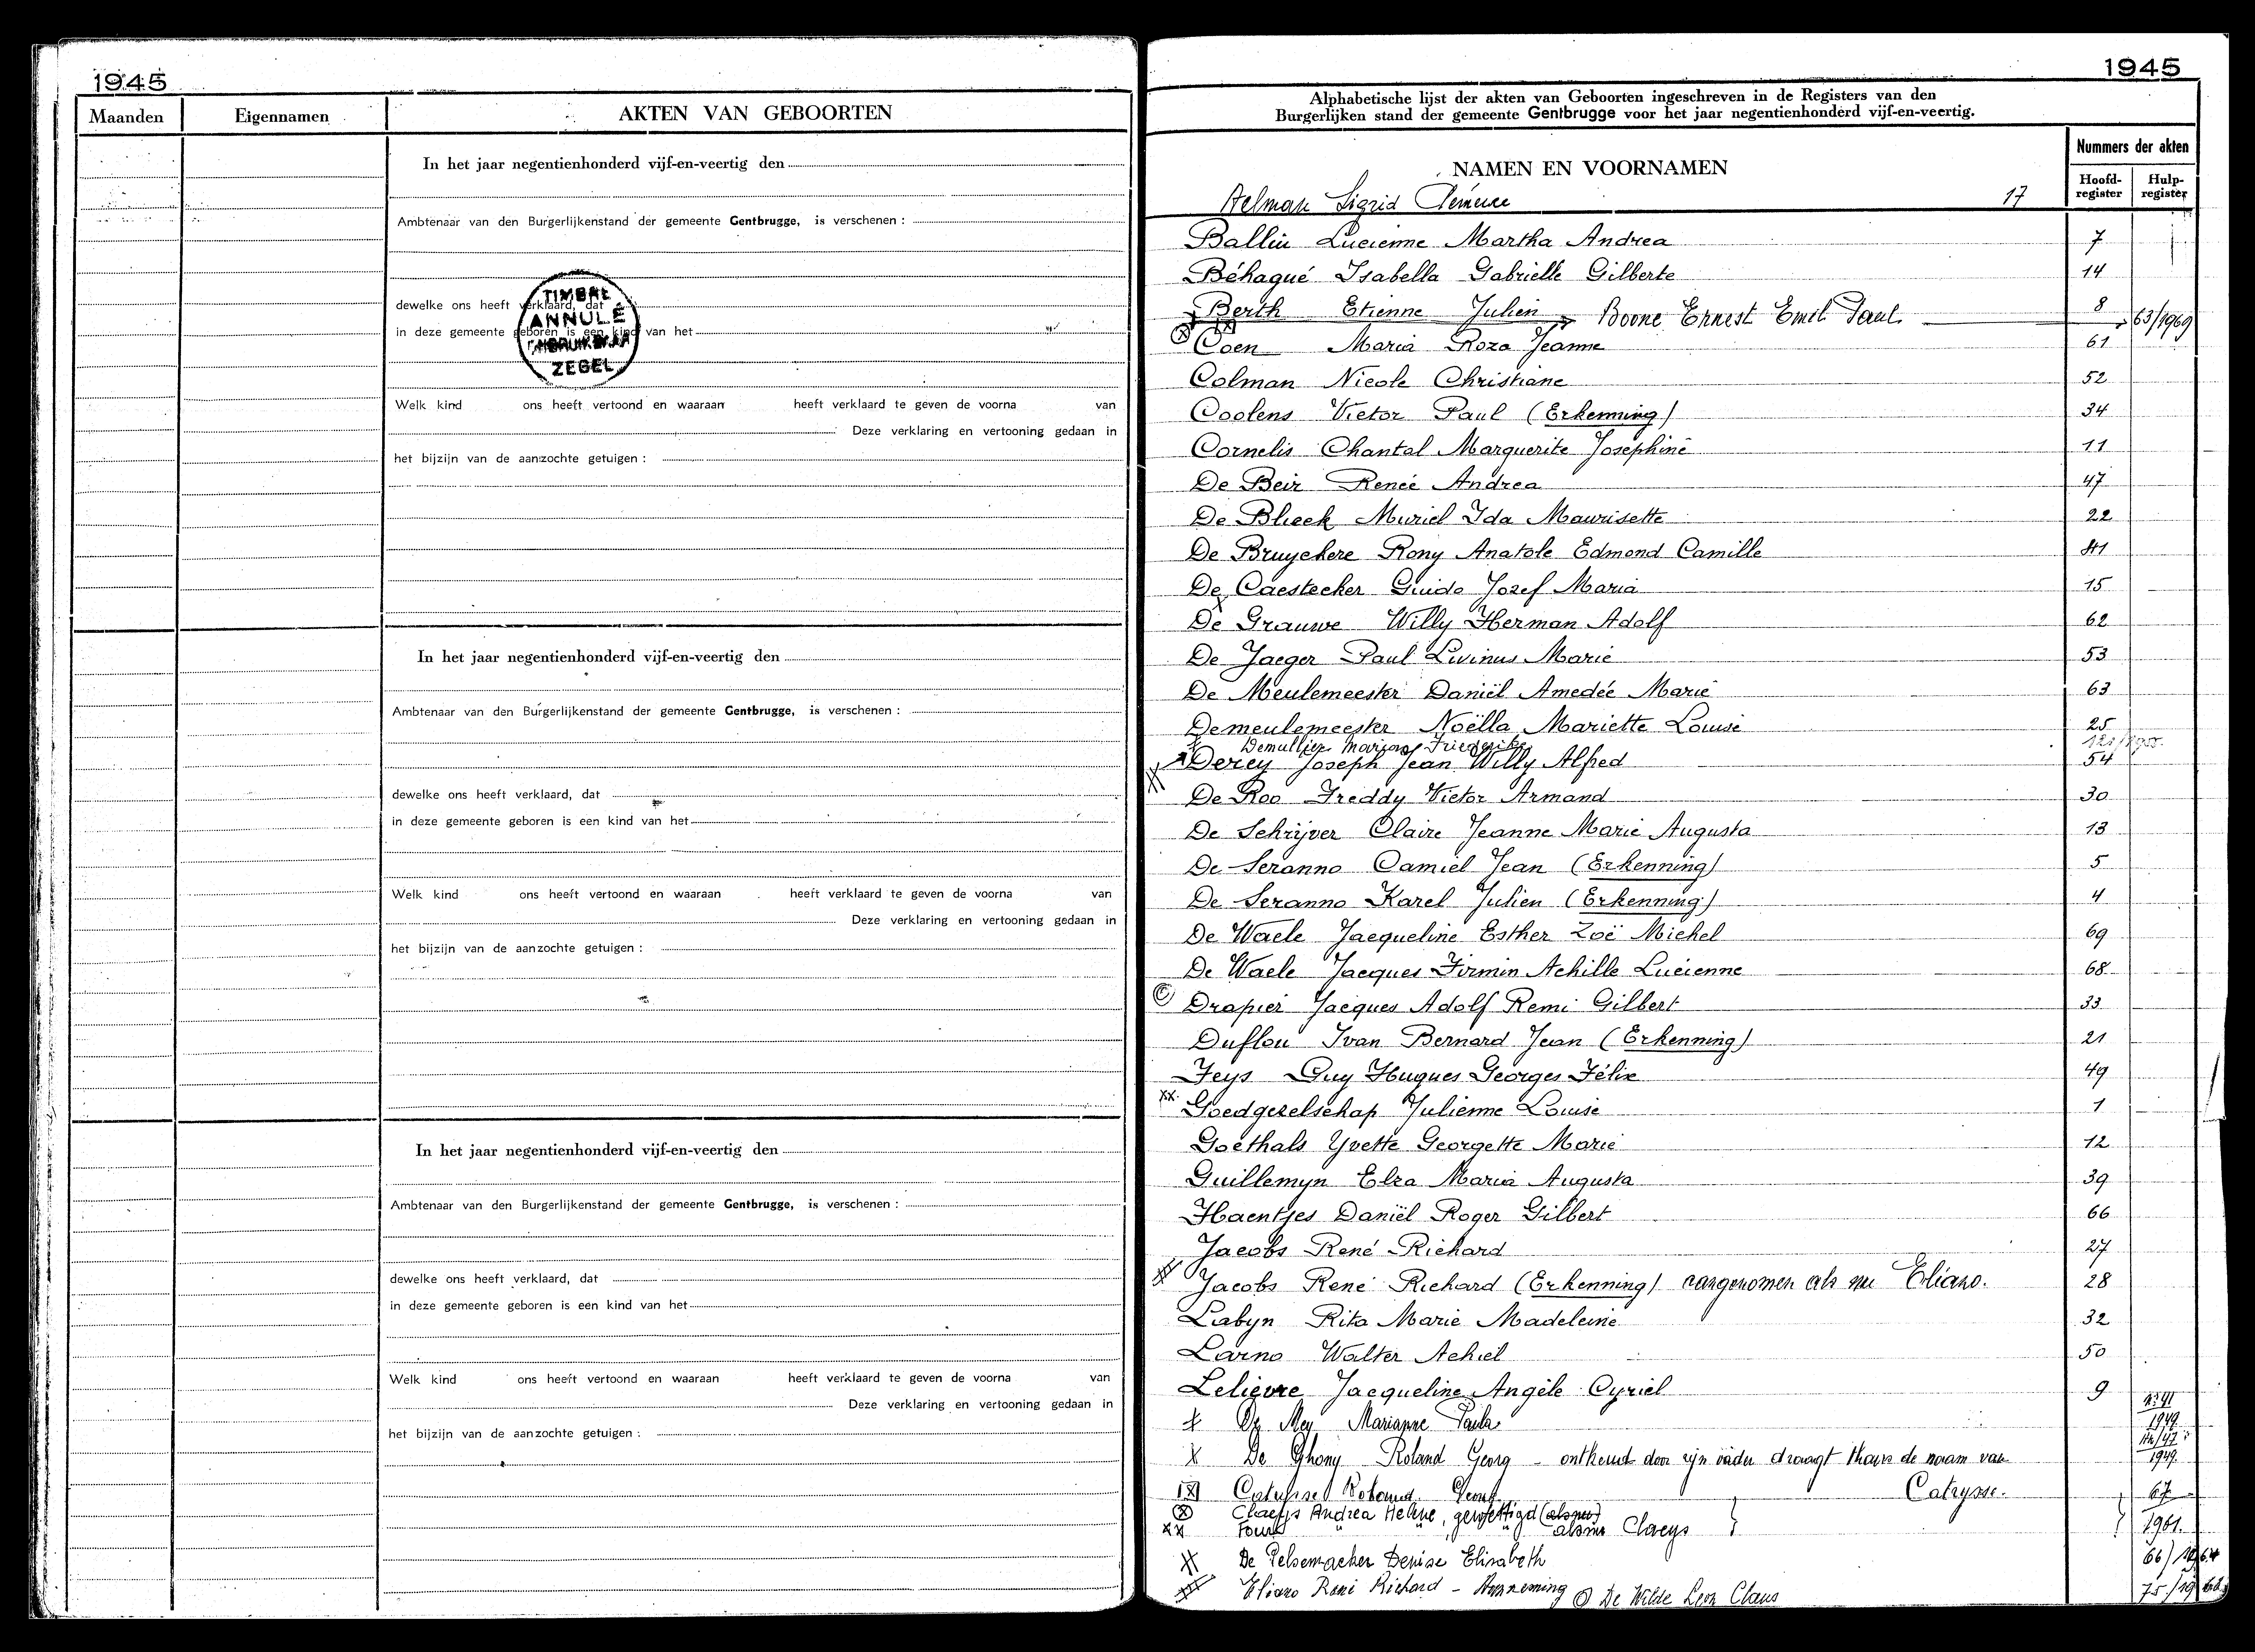 1945
Maanden
Eigennamen
AKTEN VAN GEBOORTEN
In het jaar negentienhonderd vijf-en-veertig den
Ambtenaar van den Burgerlijkenstand der gemeente Gentbrugge, is verschenen :
dewelke ons heeft verklaard, dat
in deze gemeente geboren is een kind van het
TIMBRE
ANNULÉ
ZEGEL
Welk kind ons heeft vertoond en waaraan heeft verklaard te geven de voorna van
Deze verklaring en vertooning gedaan in
het bijzijn van de aanzochte getuigen :
In het jaar negentienhonderd vijf-en-veertig den
Ambtenaar van den Burgerlijkenstand der gemeente Gentbrugge, is verschenen :
dewelke ons heeft verklaard, dat
in deze gemeente geboren is een kind van het
Welk kind ons heeft vertoond en waaraan heeft verklaard te geven de voorna van
Deze verklaring en vertooning gedaan in
het bijzijn van de aanzochte getuigen :
In het jaar negentienhonderd vijf-en-veertig den
Ambtenaar van den Burgerlijkenstand der gemeente Gentbrugge, is verschenen :
dewelke ons heeft verklaard, dat
in deze gemeente geboren is een kind van het
Welk kind ons heeft vertoond en waaraan heeft verklaard te geven de voorna van
Deze verklaring en vertooning gedaan in
het bijzijn van de aanzochte getuigen :
1945
Alphabetische lijst der akten van Geboorten ingeschreven in de Registers van den
Burgerlijken stand der gemeente Gentbrugge voor het jaar negentienhonderd vijf-en-veertig.
NAMEN EN VOORNAMEN
Nummers der akten
Hoofd-register
Hulp-register
Aelman Sigrid 17
Ballin Lucienne Martha Andrea 7
Béhagué Isabella Gabrielle Gilberte 14
Berth Etienne Julien Boone Ernest Emil Paul 8 63/1969
Coen Maria Roza Jeanne 61
Colman Nicole Christiane 52
Coolens Victor Paul (Erkenning) 34
Cornelis Chantal Marguerite Joséphine 11
De Beir Renée Andrea 47
De Blieck Muriel Ida Maurisette 22
De Bruyckere Rony Anatole Edmond Camille 41
De Caestecker Guido Jozef Maria 15
De Grauwe Willy Herman Adolf 62
De Jaeger Paul Livinus Marie 53
De Meulemeester Daniël Amedée Marie 63
Demeulemeester Noëlla Mariette Louise 25
Demullier Friederike
Derey Joseph Jean Willy Alfred 54
De Roo Freddy Victor Armand 30
De Schrijver Claire Jeanne Marie Augusta 13
De Seranno Camiel Jean (Erkenning) 5
De Seranno Karel Julien (Erkenning) 4
De Waele Jacqueline Esther Zoë Michel 69
De Waele Jacques Firmin Achille Lucienne 68
Drapier Jacques Adolf Remi Gilbert 33
Duflou Ivan Bernard Jean (Erkenning) 21
Feys Guy Hugues Georges Félix 49
xx Goedgezelschap Julienne Louise 1
Goethals Yvette Georgette Marie 12
Guillemyn Elza Maria Augusta 39
Haentjes Daniël Roger Gilbert 66
Jacobs René Richard 27
Jacobs René Richard (Erkenning) aangenomen als nu Eliano. 28
Labyn Rita Marie Madeleine 32
Larno Walter Achiel 50
Lelievre Jacqueline Angèle Cyriel 9
De Mey Marianne Paula 1949
x De Ghony Roland Georg – ontkend door zijn vader draagt thans de naam van 1949
Catrysse.
67
Claeys Andrea Helene, gewettigd (als nu)
xx als nu Claeys 1961.
De Pelsemaeker Denise Elisabeth 66/1964
Eliano René Richard – Aanneming De Wilde Leon Claus